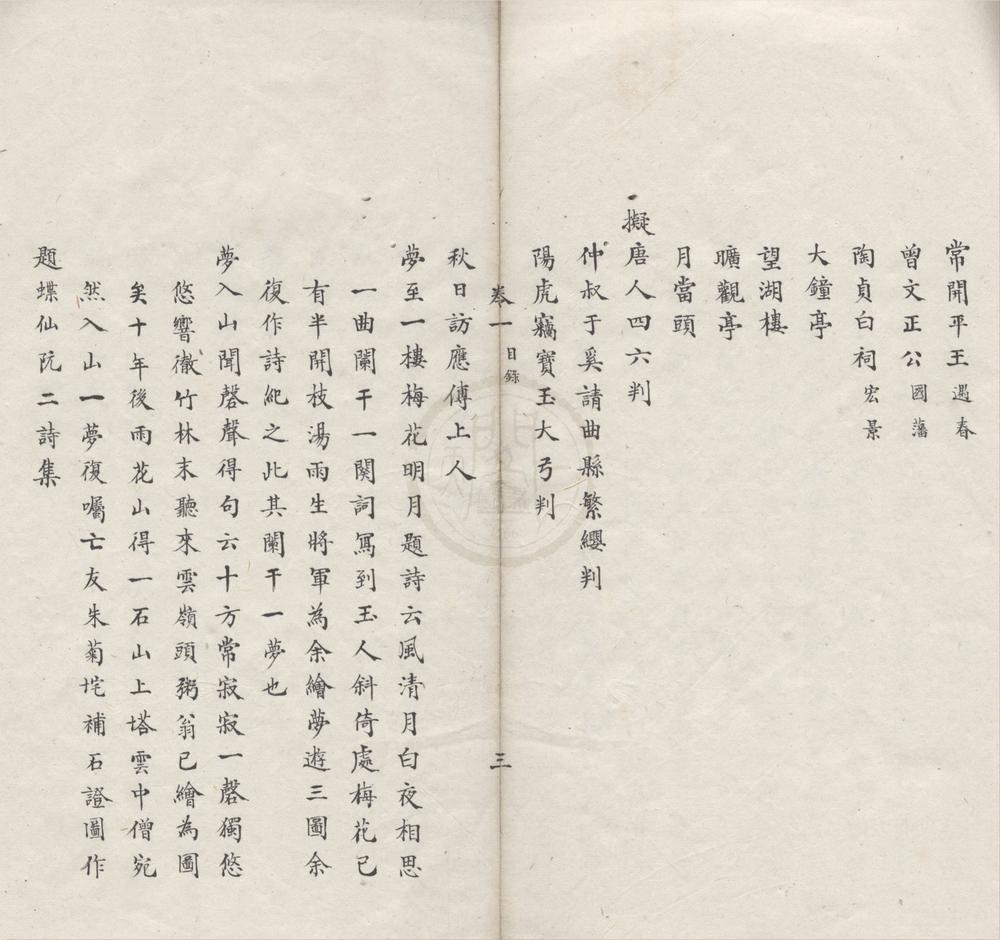 常開平王遇春
曾文正公國藩
陶貞白祠宏景
大鐘亭
望湖樓
曠觀亭
月當頭
擬唐人四六判
仲叔于奚請曲縣繁纓判
陽虎竊寶玉大弓判
卷一 目錄 三
秋日訪應傅上人
夢至一樓梅花明月題詩云風清月白夜相思
一曲闌干一闋詞寫到玉人斜倚處梅花已
有半開枝湯雨生將軍為余繪夢遊三圖余
復作詩紀之此其闌干一夢也
夢入山聞磬聲得句云十方常寂寂一磬獨悠
悠響徹竹林末聽來雲嶺頭粥翁已繪為圖
矣十年後雨花山得一石山上塔雲中僧宛
然入山一夢復囑亡友朱菊坨補石證圖作
題蝶仙阮二詩集